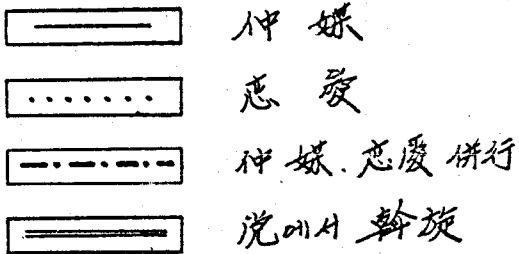 仲媒
恋愛
仲媒.恋愛併行
党에서 斡旋